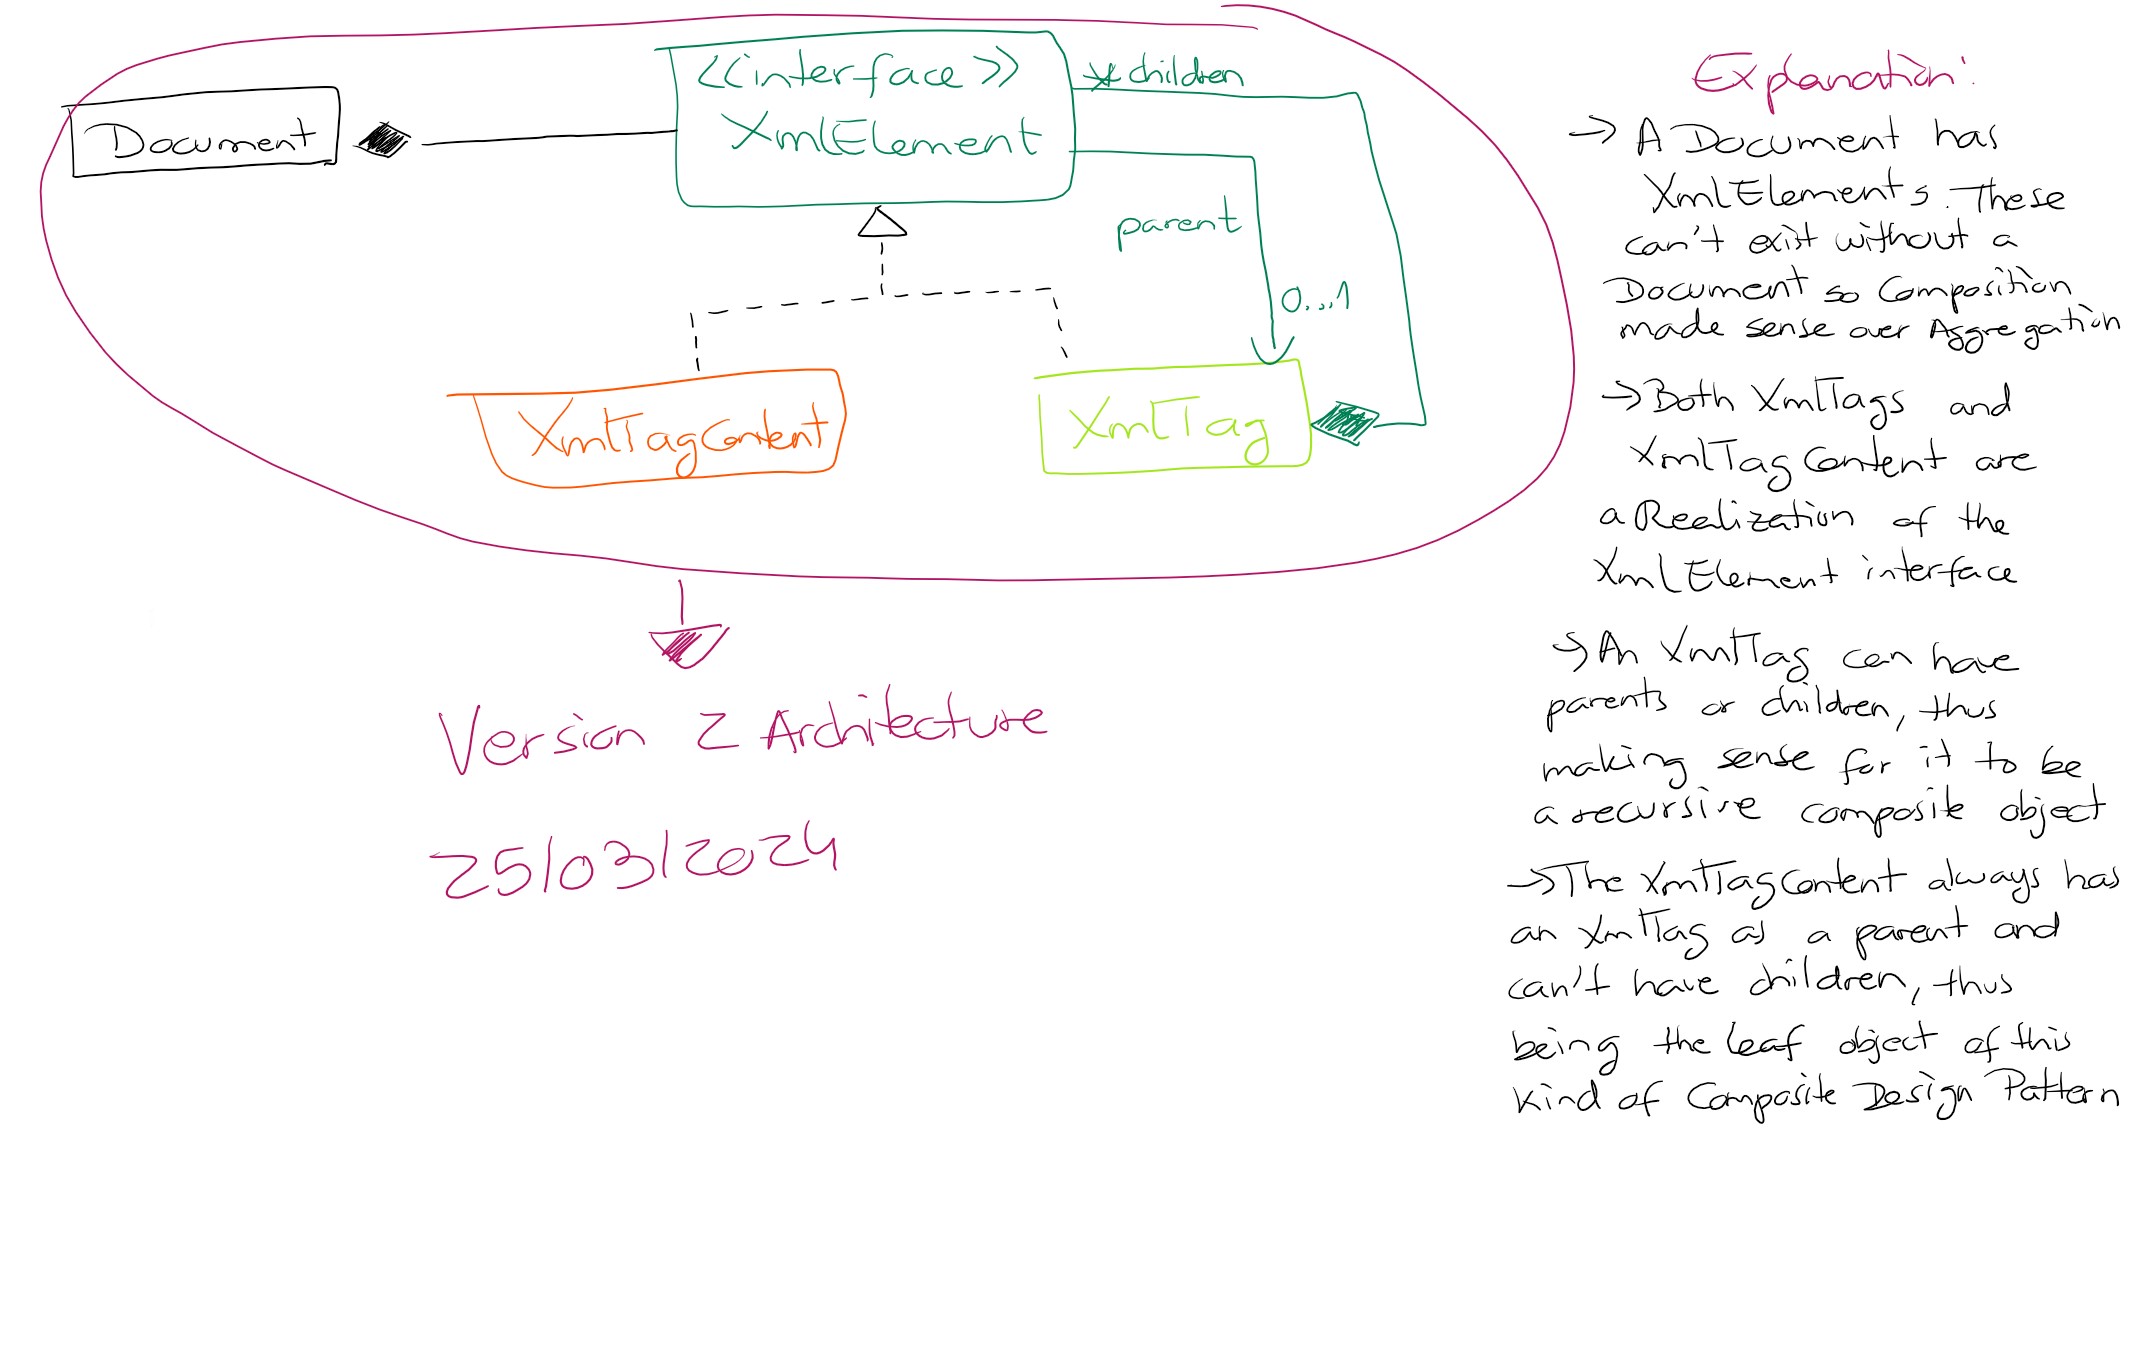 <<interface>>
XmlElement
* children
Document
parent
0...1
XmlTagContent
XmlTag
Version 2 Architecture
25/03/2024
Explanation:
→ A Document has
XmlElements. These
can't exist without a
Document so Composition
made sense over Aggregation
→ Both XmlTags and
XmlTagContent are
a Realization of the
XmlElement interface
→ An XmlTag can have
parents or children, thus
making sense for it to be
a recursive composite object
→ The XmlTagContent always has
an XmlTag as a parent and
can't have children, thus
being the leaf object of this
kind of Composite Design Pattern